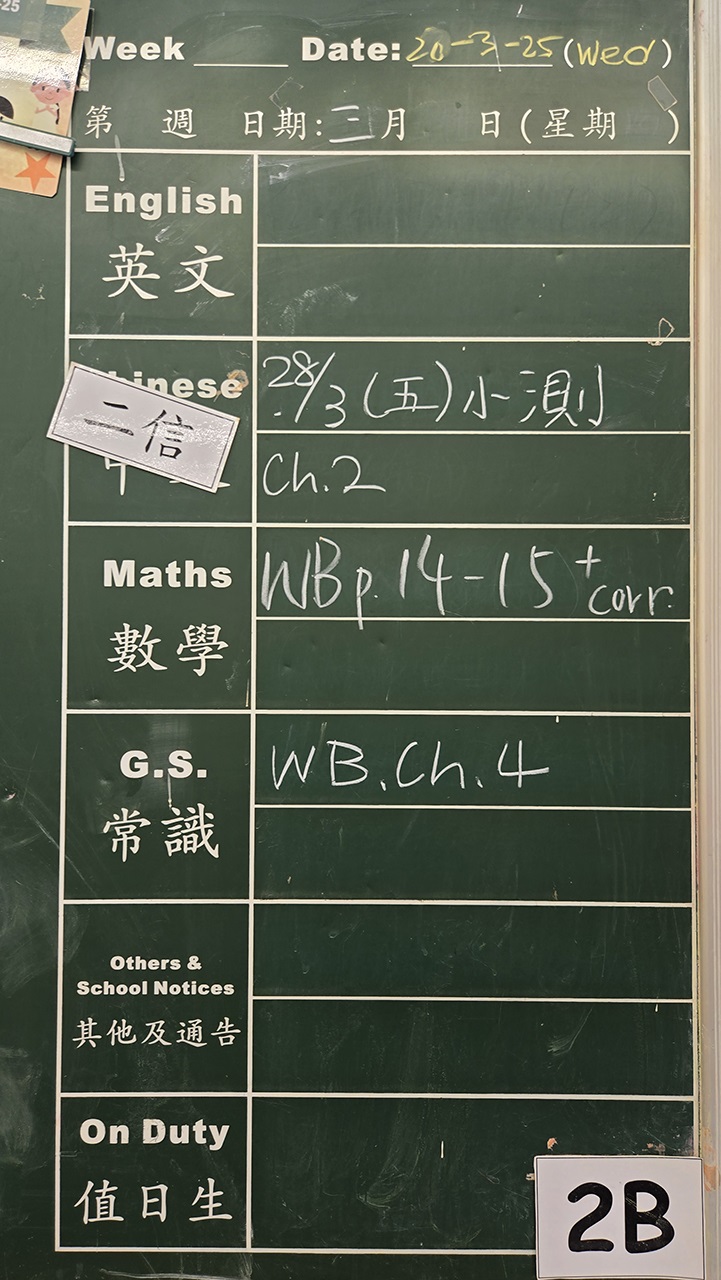 -25
Week Date: 20-3-25 (Wed)
第 週 日期: 三月 日 (星期 )
English
英文
Chinese
28/3 (五) 小測
二信
Ch.2
Maths
WB p. 14-15 + corr.
數學
G.S.
WB. Ch. 4
常識
Others &
School Notices
其他及通告
On Duty
值日生
2B